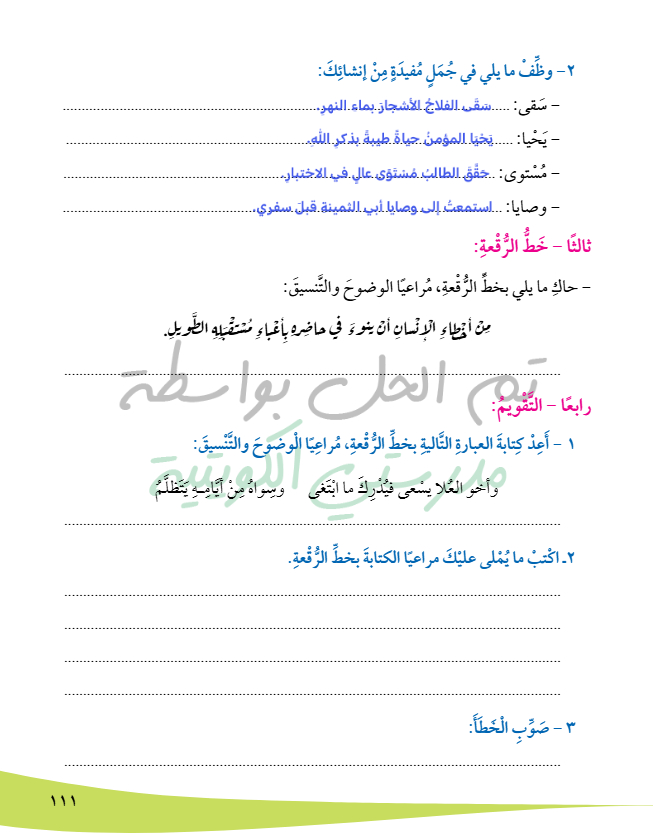 ٢- وظِّفْ ما يلي في جُمَلٍ مُفيدَةٍ مِنْ إنشائِكَ:
- سَقى: سَقَى الفلاحُ الأشجارَ بماءِ النهرِ.
- يَحْيا: يَحْيَا المؤمنُ حياةً طيبةً بذكرِ اللهِ.
- مُسْتوى: حَقَّقَ الطالبُ مُسْتَوًى عالٍ في الاختبارِ.
- وصايا: استمعتُ إلى وصايا أبي الثمينةِ قبلَ سفري.
ثالثًا - خَطُّ الرُّقْعةِ:
- حاكِ ما يلي بخطِّ الرُّقْعةِ، مُراعيًا الوضوحَ والتَّنسيقَ:
مِنْ أخْطاءِ الإنْسانِ أنْ ينوءَ في حاضِرِهِ بِأعْباءِ مُسْتقْبَلِهِ الطَّويلِ.
تم الحل بواسطة
رابعًا - التَّقْويمُ:
١ - أَعِدْ كِتابةَ العبارةِ التَّاليةِ بخطِّ الرُّقْعةِ، مُراعِيًا الْوضوحَ والتَّنْسيقَ:
مدرستي الكويتية
وأخو العُلا يسْعى فيُدْرِكَ ما ابْتَغى وسِواهُ مِنْ أيَّامِـهِ يَتَظلَّمُ
٢ـ اكْتبْ ما يُمْلى عليْكَ مراعيًا الكتابةَ بخطِّ الرُّقْعةِ.
٣ - صَوِّبِ الْخَطَأَ:
١١١